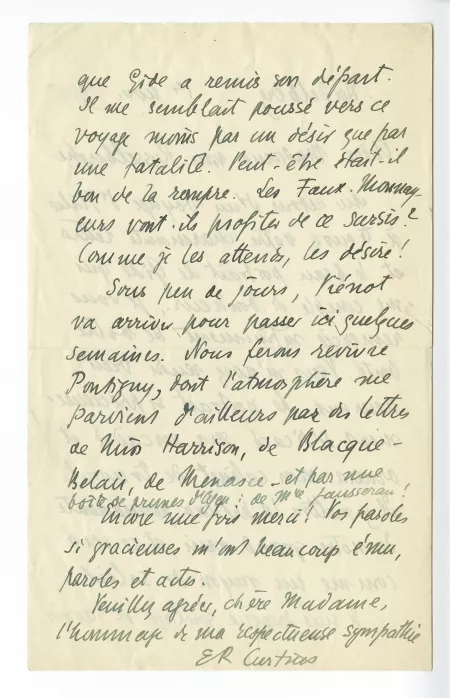 que Gide a remis son départ.
Il me semblait poussé vers ce
voyage moins par un désir que par
une fatalité. Peut-être était-il
bon de la rompre. Les Faux-Monnay-
eurs vont-ils profiter de ce sursis?
Comme je les attends, les désire!
Sous peu de jours, Viénot
va arriver pour passer ici quelques
semaines. Nous ferons revivre
Pontigny, dont l'atmosphère me
parvient d'ailleurs par des lettres
de Miss Harrison, de Blacque-
Belair, de Menasce - et par une
boîte de prunes d'Agen: de Mme
Encore une fois merci! Vos paroles
si gracieuses m'ont beaucoup ému,
paroles et actes.
Veuillez agréer, chère Madame,
l'hommage de ma respectueuse sympathie
ER Curtius